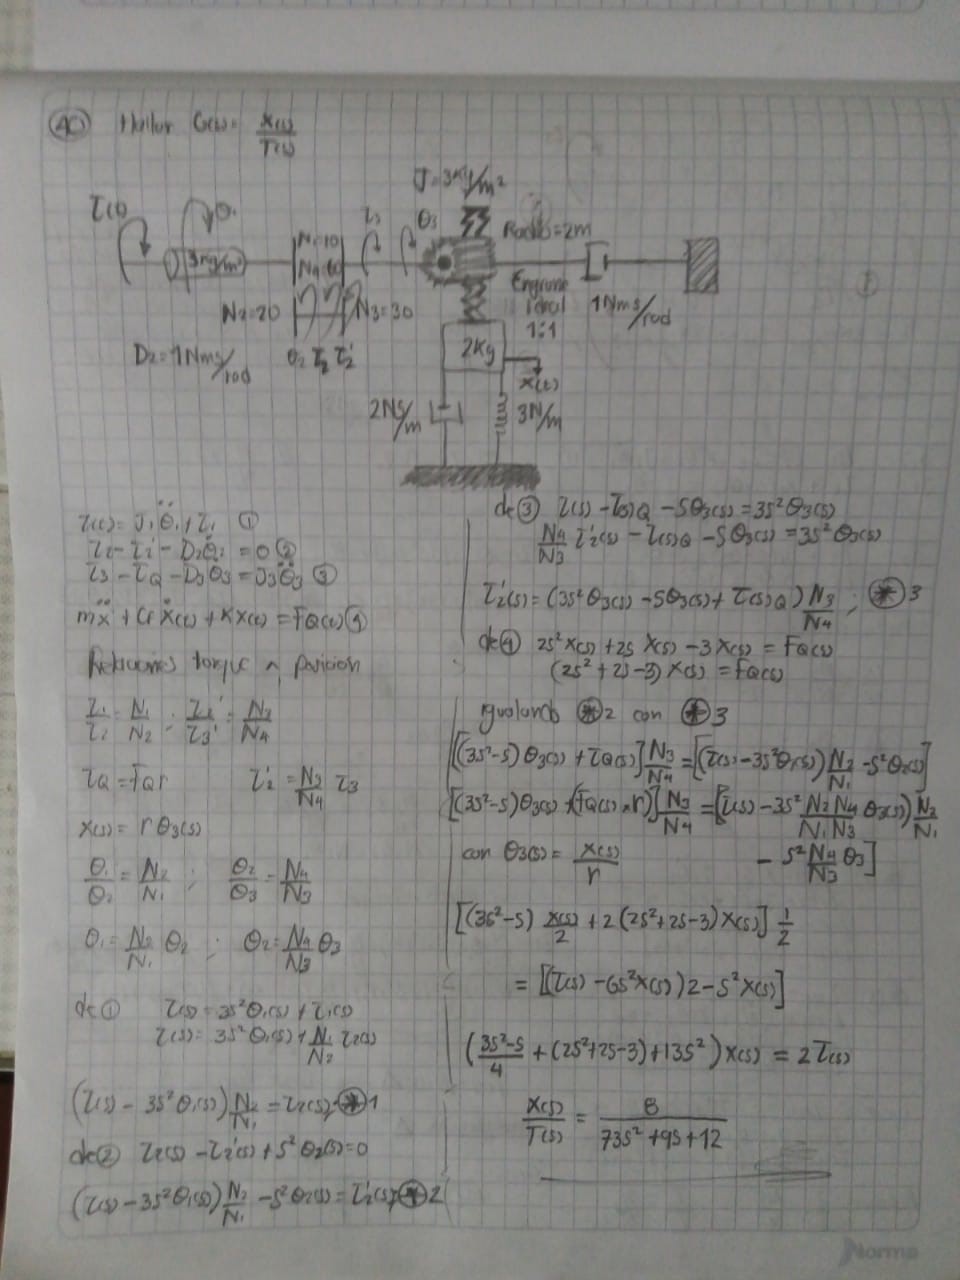 40 Hallar G(s) = X(s)/T(s)
J=3Kg/m²
τ(t) θ₁ τ₃ θ₃ Radio=2m
3kg/m² N₁=10
N₄=60
Engrane
Ideal
1:1
1Nms/rad
N₂=20 N₃=30
D₂=1Nms/rad θ₂ τ₂ τ₂' 2Kg
x(t)
2NS/m 3N/m
τ(t)= J₁θ̈₁+τ₁ ①
τ₂-τ₂'-D₂θ̇₂=0 ②
τ₃-τQ-D₃θ̇₃=J₃θ̈₃ ③
mẍ+Cr ẋ(t)+Kx(t)=FQ(t) ④
Relaciones torque ^ posicion
τ₁/τ₂ = N₁/N₂ ; τ₂'/τ₃' = N₃/N₄
τQ=FQr τ₂'=N₃/N₄ τ₃
x(s)= rθ₃(s)
θ₁/θ₂ = N₂/N₁ ; θ₂/θ₃ = N₄/N₃
θ₁=N₂/N₁ θ₂ ; θ₂=N₄/N₃ θ₃
de ① τ(s)=3s²θ₁(s)+τ₁(s)
τ(s)=3s²θ₁(s)+N₁/N₂ τ₂(s)
(τ(s)-3s²θ₁(s))N₂/N₁=τ₂(s) ⊛1
de ② τ₂(s)-τ₂'(s)+s²θ₂(s)=0
(τ(s)-3s²θ₁(s))N₂/N₁-s²θ₂(s)=τ₂'(s) ⊛2
de ③ τ(s)-τ(s)Q-sθ₃(s)=3s²θ₃(s)
N₄/N₃ τ₂'(s)-τ(s)Q-sθ₃(s)=3s²θ₃(s)
τ₂'(s)=(3s²θ₃(s)-sθ₃(s)+τ(s)Q)N₃/N₄ ; ⊛3
de ④ 2s²x(s)+2s x(s)-3x(s)=FQ(s)
(2s²+2s-3)x(s)=FQ(s)
igualando ⊛2 con ⊛3
[(3s²-s)θ₃(s)+τQ(s)]N₃/N₄=[(τ(s)-3s²θ₁(s))N₂/N₁-s²θ₂(s)]
[(3s²-s)θ₃(s)+(FQ(s)·r)]N₃/N₄=[(τ(s)-3s² N₂N₄/N₁N₃ θ₃(s))N₂/N₁
con θ₃(s)=x(s)/r -s² N₄/N₃ θ₃]
[(3s²-s) x(s)/2 + 2(2s²+2s-3)x(s)] 1/2
=[(τ(s)-6s²x(s))2-s²x(s)]
((3s²-s)/4+(2s²+2s-3)+13s²)x(s)=2τ(s)
X(s)/T(s) = 8/(73s²+9s+12)
Norma